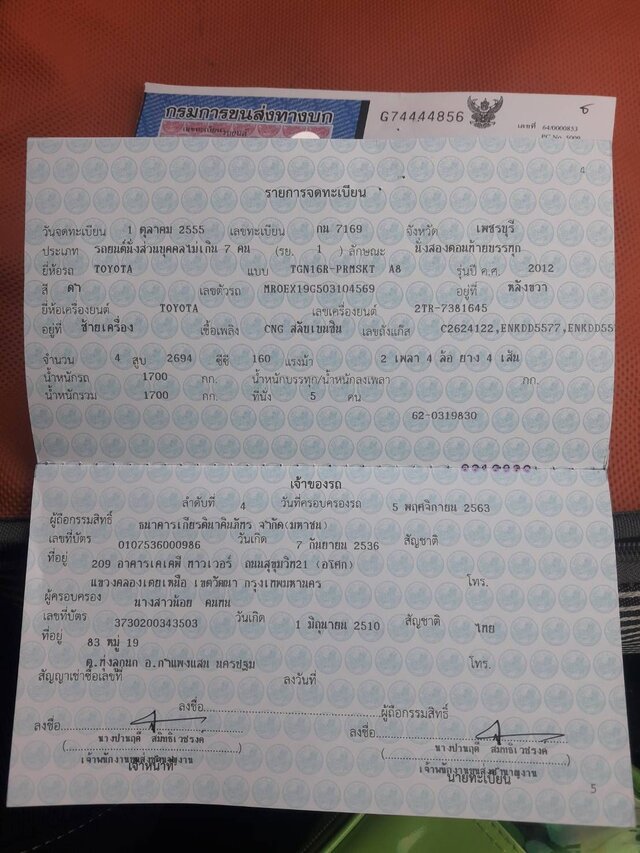 กรมการขนส่งทางบก G7444856
เลขที่ 64/0000853
4
รายการจดทะเบียน
วันจดทะเบียน 1 ตุลาคม 2555 เลขทะเบียน กน 7169 จังหวัด เพชรบุรี
ประเภท รถยนต์นั่งส่วนบุคคลไม่เกิน 7 คน (รย. 1) ลักษณะ นั่งสองตอนท้ายบรรทุก
ยี่ห้อรถ TOYOTA แบบ TGN16R-PRMSKT A8 รุ่นปี ค.ศ. 2012
สี ดำ เลขตัวรถ MR0EX19G503104569 อยู่ที่ หลังขวา
ยี่ห้อเครื่องยนต์ TOYOTA เลขเครื่องยนต์ 2TR-7381645
อยู่ที่ ซ้ายเครื่อง เชื้อเพลิง CNG สลับเบนซิน เลขถังแก๊ส C2624122,ENKDD5577,ENKDD55
จำนวน 4 สูบ 2694 ซีซี 160 แรงม้า 2 เพลา 4 ล้อ ยาง 4 เส้น
น้ำหนักรถ 1700 กก. น้ำหนักบรรทุก/น้ำหนักลงเพลา กก.
น้ำหนักรวม 1700 กก. ที่นั่ง 5 คน
62-0319830
เจ้าของรถ
ลำดับที่ 4 วันที่ครอบครองรถ 5 พฤศจิกายน 2563
ผู้ถือกรรมสิทธิ์ ธนาคารเกียรตินาคินภัทร จำกัด(มหาชน)
เลขที่บัตร 0107536000986 วันเกิด 7 กันยายน 2536 สัญชาติ
ที่อยู่ 209 อาคารเคเคพี ทาวเวอร์ ถนนสุขุมวิท21 (อโศก)
แขวงคลองเตยเหนือ เขตวัฒนา กรุงเทพมหานคร โทร.
ผู้ครอบครอง นางสาวน้อย คนทน
เลขที่บัตร 3730200343503 วันเกิด 1 มิถุนายน 2510 สัญชาติ ไทย
ที่อยู่ 83 หมู่ 19
ต.ทุ่งลูกนก อ.กำแพงแสน นครปฐม โทร.
สัญญาเช่าซื้อเลขที่ ลงวันที่
ลงชื่อ ผู้ถือกรรมสิทธิ์
ลงชื่อ ลงชื่อ
เจ้าหน้าที่ นายทะเบียน
5